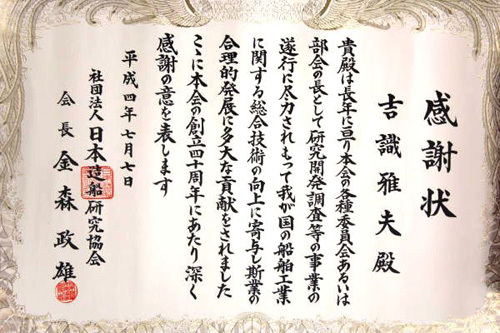 感謝状
吉識雅夫殿
貴殿は長年に亘り本会の各種委員会あるいは
部会の長として研究開発調査等の事業の
遂行に尽力されもって我が国の船舶工業
に関する総合技術の向上に寄与し斯業の
合理的発展に多大な貢献をされました
ここに本会の創立四十周年にあたり深く
感謝の意を表します
平成四年七月七日
社団法人日本造船研究協会
会長金森政雄